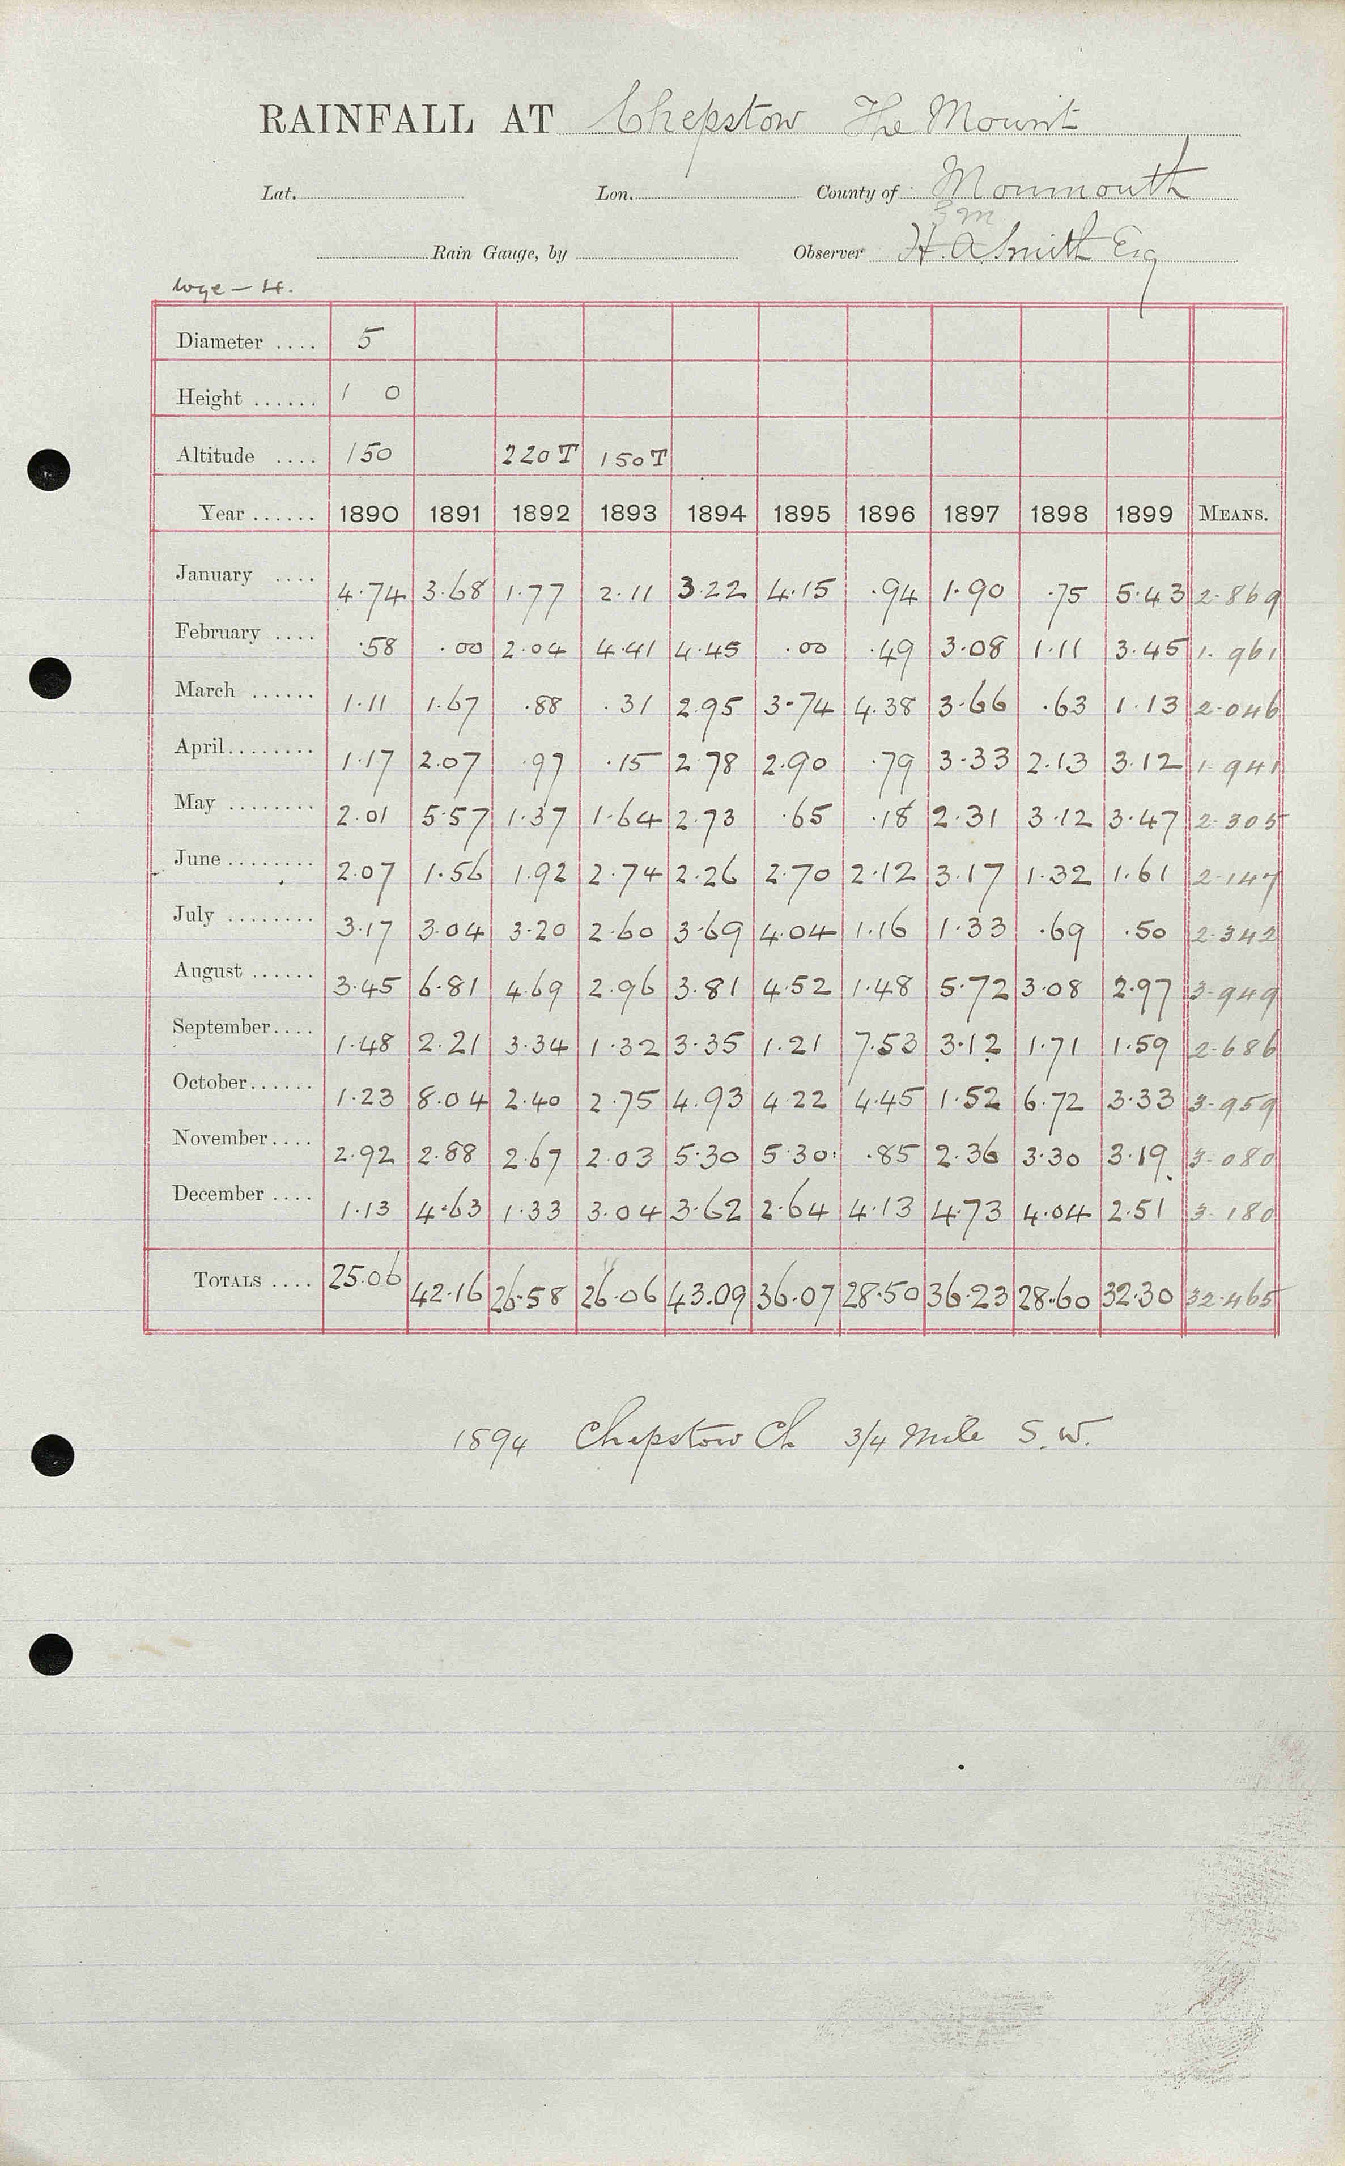 RAINFALL AT Chepstow The Mount
Lat. Lon. County of Monmouth
3m
Rain Gauge, by Observer H. A. Smith Esq
Wye – 4.
Diameter .... 5
Height ...... 1 0
Altitude .... 150 220T 150T
Year ...... 1890 1891 1892 1893 1894 1895 1896 1897 1898 1899 MEANS.
January .... 4.74 3.68 1.77 2.11 3.22 4.15 .94 1.90 .75 5.43 2.869
February .... .58 .00 2.04 4.41 4.45 .00 .49 3.08 1.11 3.45 1.961
March ...... 1.11 1.67 .88 .31 2.95 3.74 4.38 3.66 .63 1.13 2.046
April........ 1.17 2.07 .97 .15 2.78 2.90 .79 3.33 2.13 3.12 1.941
May ........ 2.01 5.57 1.37 1.64 2.73 .65 .18 2.31 3.12 3.47 2.305
June ........ 2.07 1.56 1.92 2.74 2.26 2.70 2.12 3.17 1.32 1.61 2.147
July ........ 3.17 3.04 3.20 2.60 3.69 4.04 1.16 1.33 .69 .50 2.342
August ...... 3.45 6.81 4.69 2.96 3.81 4.52 1.48 5.72 3.08 2.97 3.949
September.... 1.48 2.21 3.34 1.32 3.35 1.21 7.53 3.12 1.71 1.59 2.686
October...... 1.23 8.04 2.40 2.75 4.93 4.22 4.45 1.52 6.72 3.33 3.959
November.... 2.92 2.88 2.67 2.03 5.30 5.30 .85 2.36 3.30 3.19 3.080
December .... 1.13 4.63 1.33 3.04 3.62 2.64 4.13 4.73 4.04 2.51 3.180
TOTALS .... 25.06 42.16 26.58 26.06 43.09 36.07 28.50 36.23 28.60 32.30 32.465
1894 Chepstow Ch 3/4 Mile S.W.